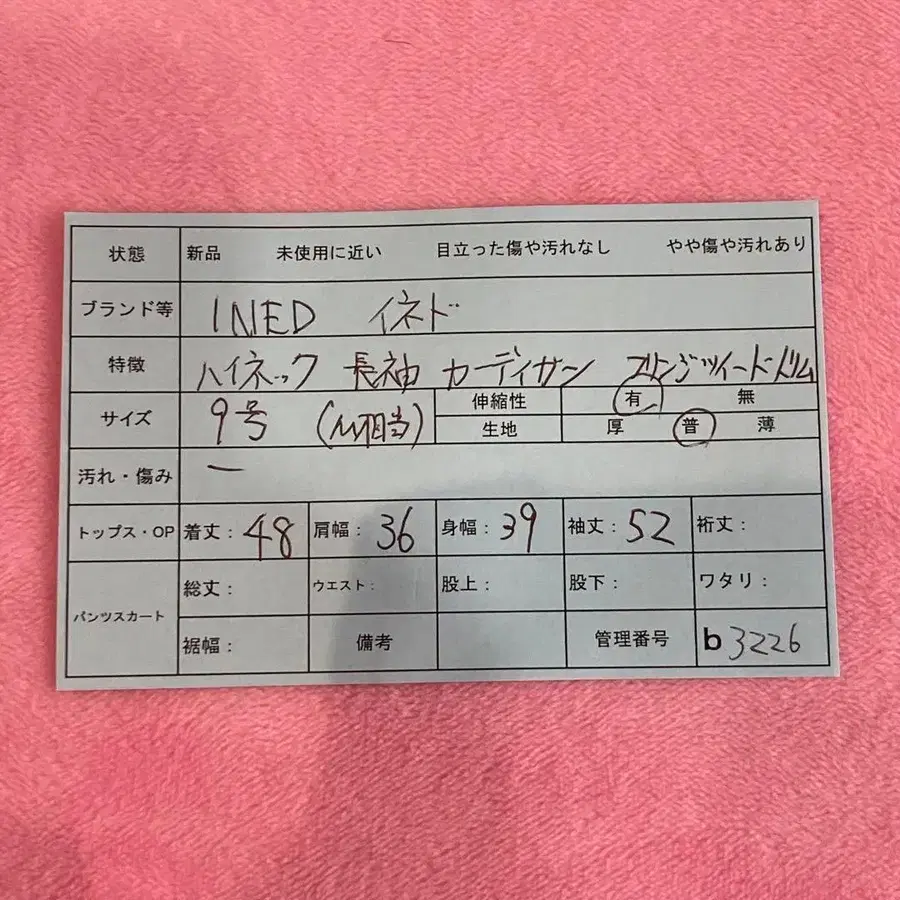 状態 新品 未使用に近い 目立った傷や汚れなし やや傷や汚れあり
ブランド等 INED イネド
特徴 ハイネック 長袖 カーディガン フリンジツイード
サイズ 9号 (M相当) 伸縮性 有 無
生地 厚 普 薄
汚れ・傷み ー
トップス・OP 着丈: 48 肩幅: 36 身幅: 39 袖丈: 52 裄丈:
パンツスカート 総丈: ウエスト: 股上: 股下: ワタリ:
裾幅: 備考 管理番号 b 3226